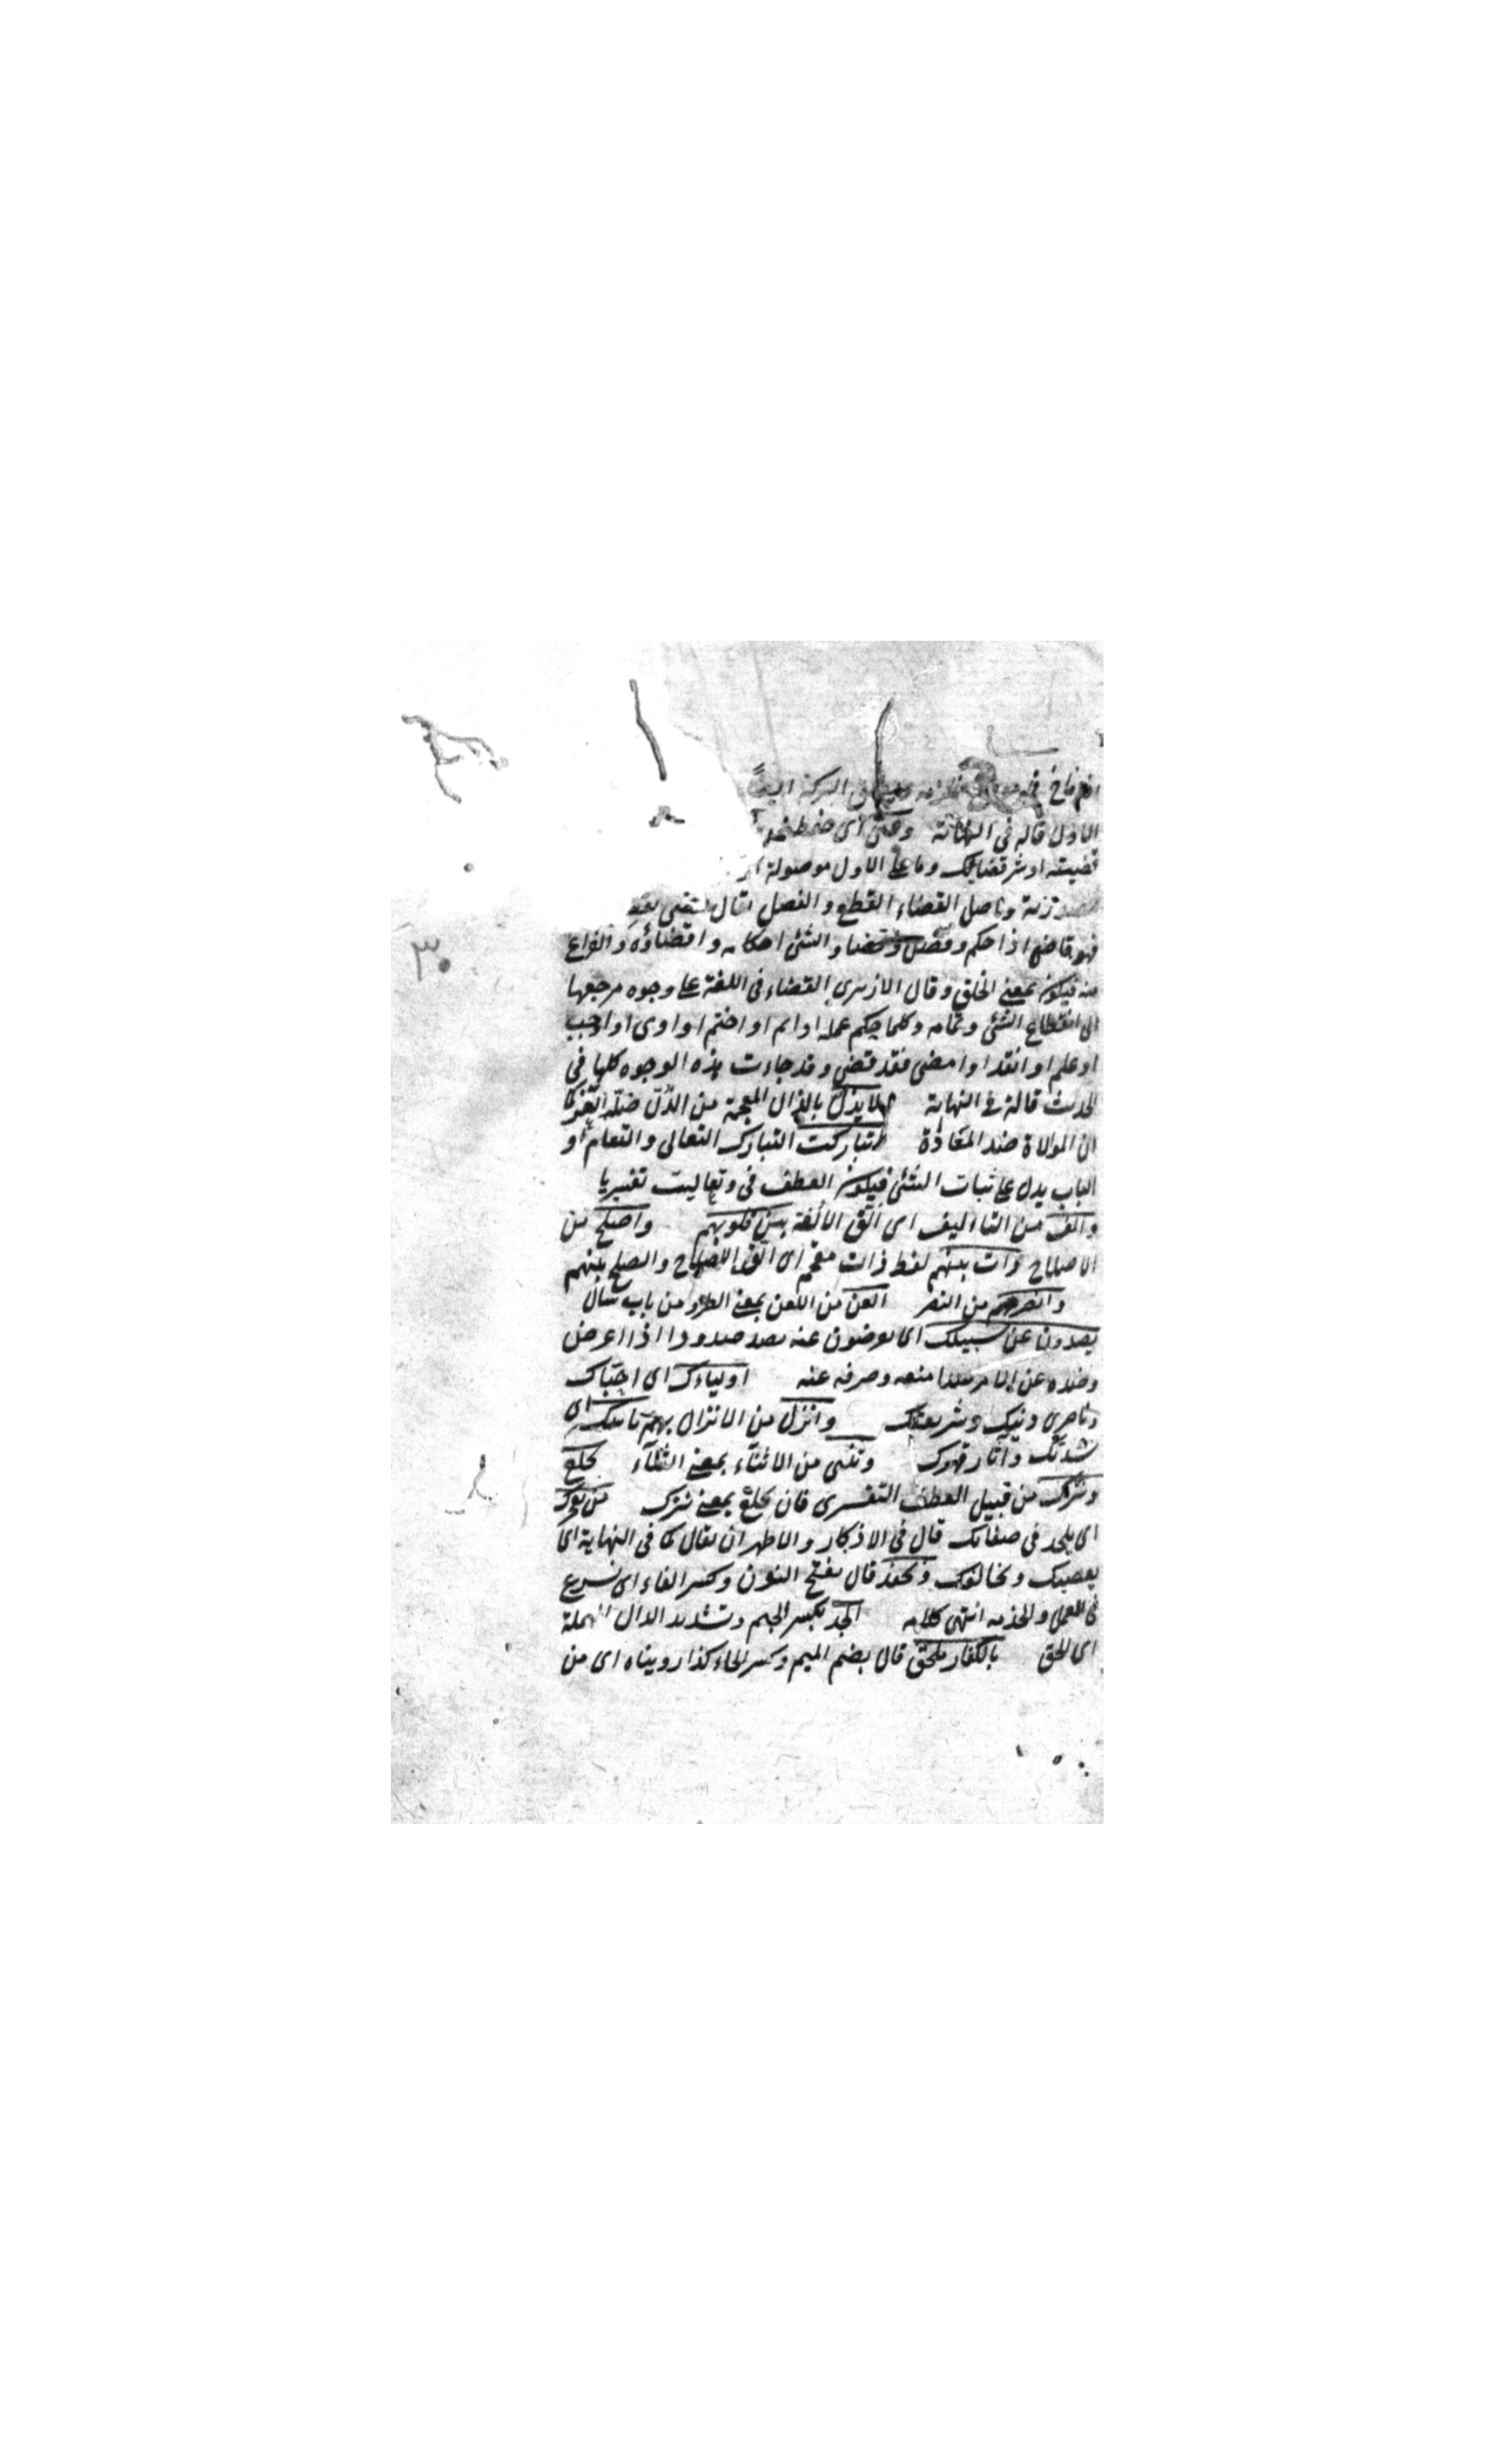 البركة ايضًا
الاول قاله فى النهاية وقنى اى
قضيته او شر قضائك وما على الاول موصولة
واصل القضاء القطع والفصل يقال
فهو قاض اذا حكم وفصل وقضاو الشئ احكامه وامضاؤه والفراغ
منه فيكون بمعنى الخلق وقال الازهرى القضاء فى اللغة على وجوه مرجعها
الى انقطاع الشئ وتمامه وكلما حكم عمله او اتم او اختم او اوى او اوجب
او علم او انفد او امضى فقد قضى وقد جاءت هذه الوجوه كلها فى
الحديث قاله فى النهاية لا يذل بالذال المعجمة من الذل ضد العز كما
ان الموالاة ضد المعاداة تباركت التبارك التعالى والتعاظم او
الباب يدل على ثبات الشئ فيكون العطف فى وتعاليت تفسيريا
والف من التااليف اى الق الالفة بين قلوبهم واصلح من
الاصلاح ذات بينهم لفظ ذات مقحم اى الق الاصلاح والصلح بينهم
وانصرهم من النصر العن من اللعن بمعنى الطرد من باب سال
يصدون عن سبيلك اى يعرضون عنه يصد صدودا اذا اعرض
وصده عن الامر صدا منعه وصرفه عنه اولياءك اى احبّاك
وناصرى دينك وشريعتك وانزل من الانزال بهم باسك اى
شدتك وآثار قهرك ونثنى من الاثناء بمعنى الثناء نخلع
ونترك من قبيل العطف التفسرى فان نخلع بمعنى نترك من يفجرك
اى يلحد فى صفاتك قال فى الاذكار والاظهر ان يقال كما فى النهاية اى
يعصيك ويخالفك ونحفد قال بفتح النون وكسر الفاء اى نسرع
فى العمل والخدمه انتهى كلامه الجد بكسر الجيم وتشديد الدال المهملة
اى الحق بالكفار ملحق قال بضم الميم وكسر الحاء كذا رويناه اى من
٣٠